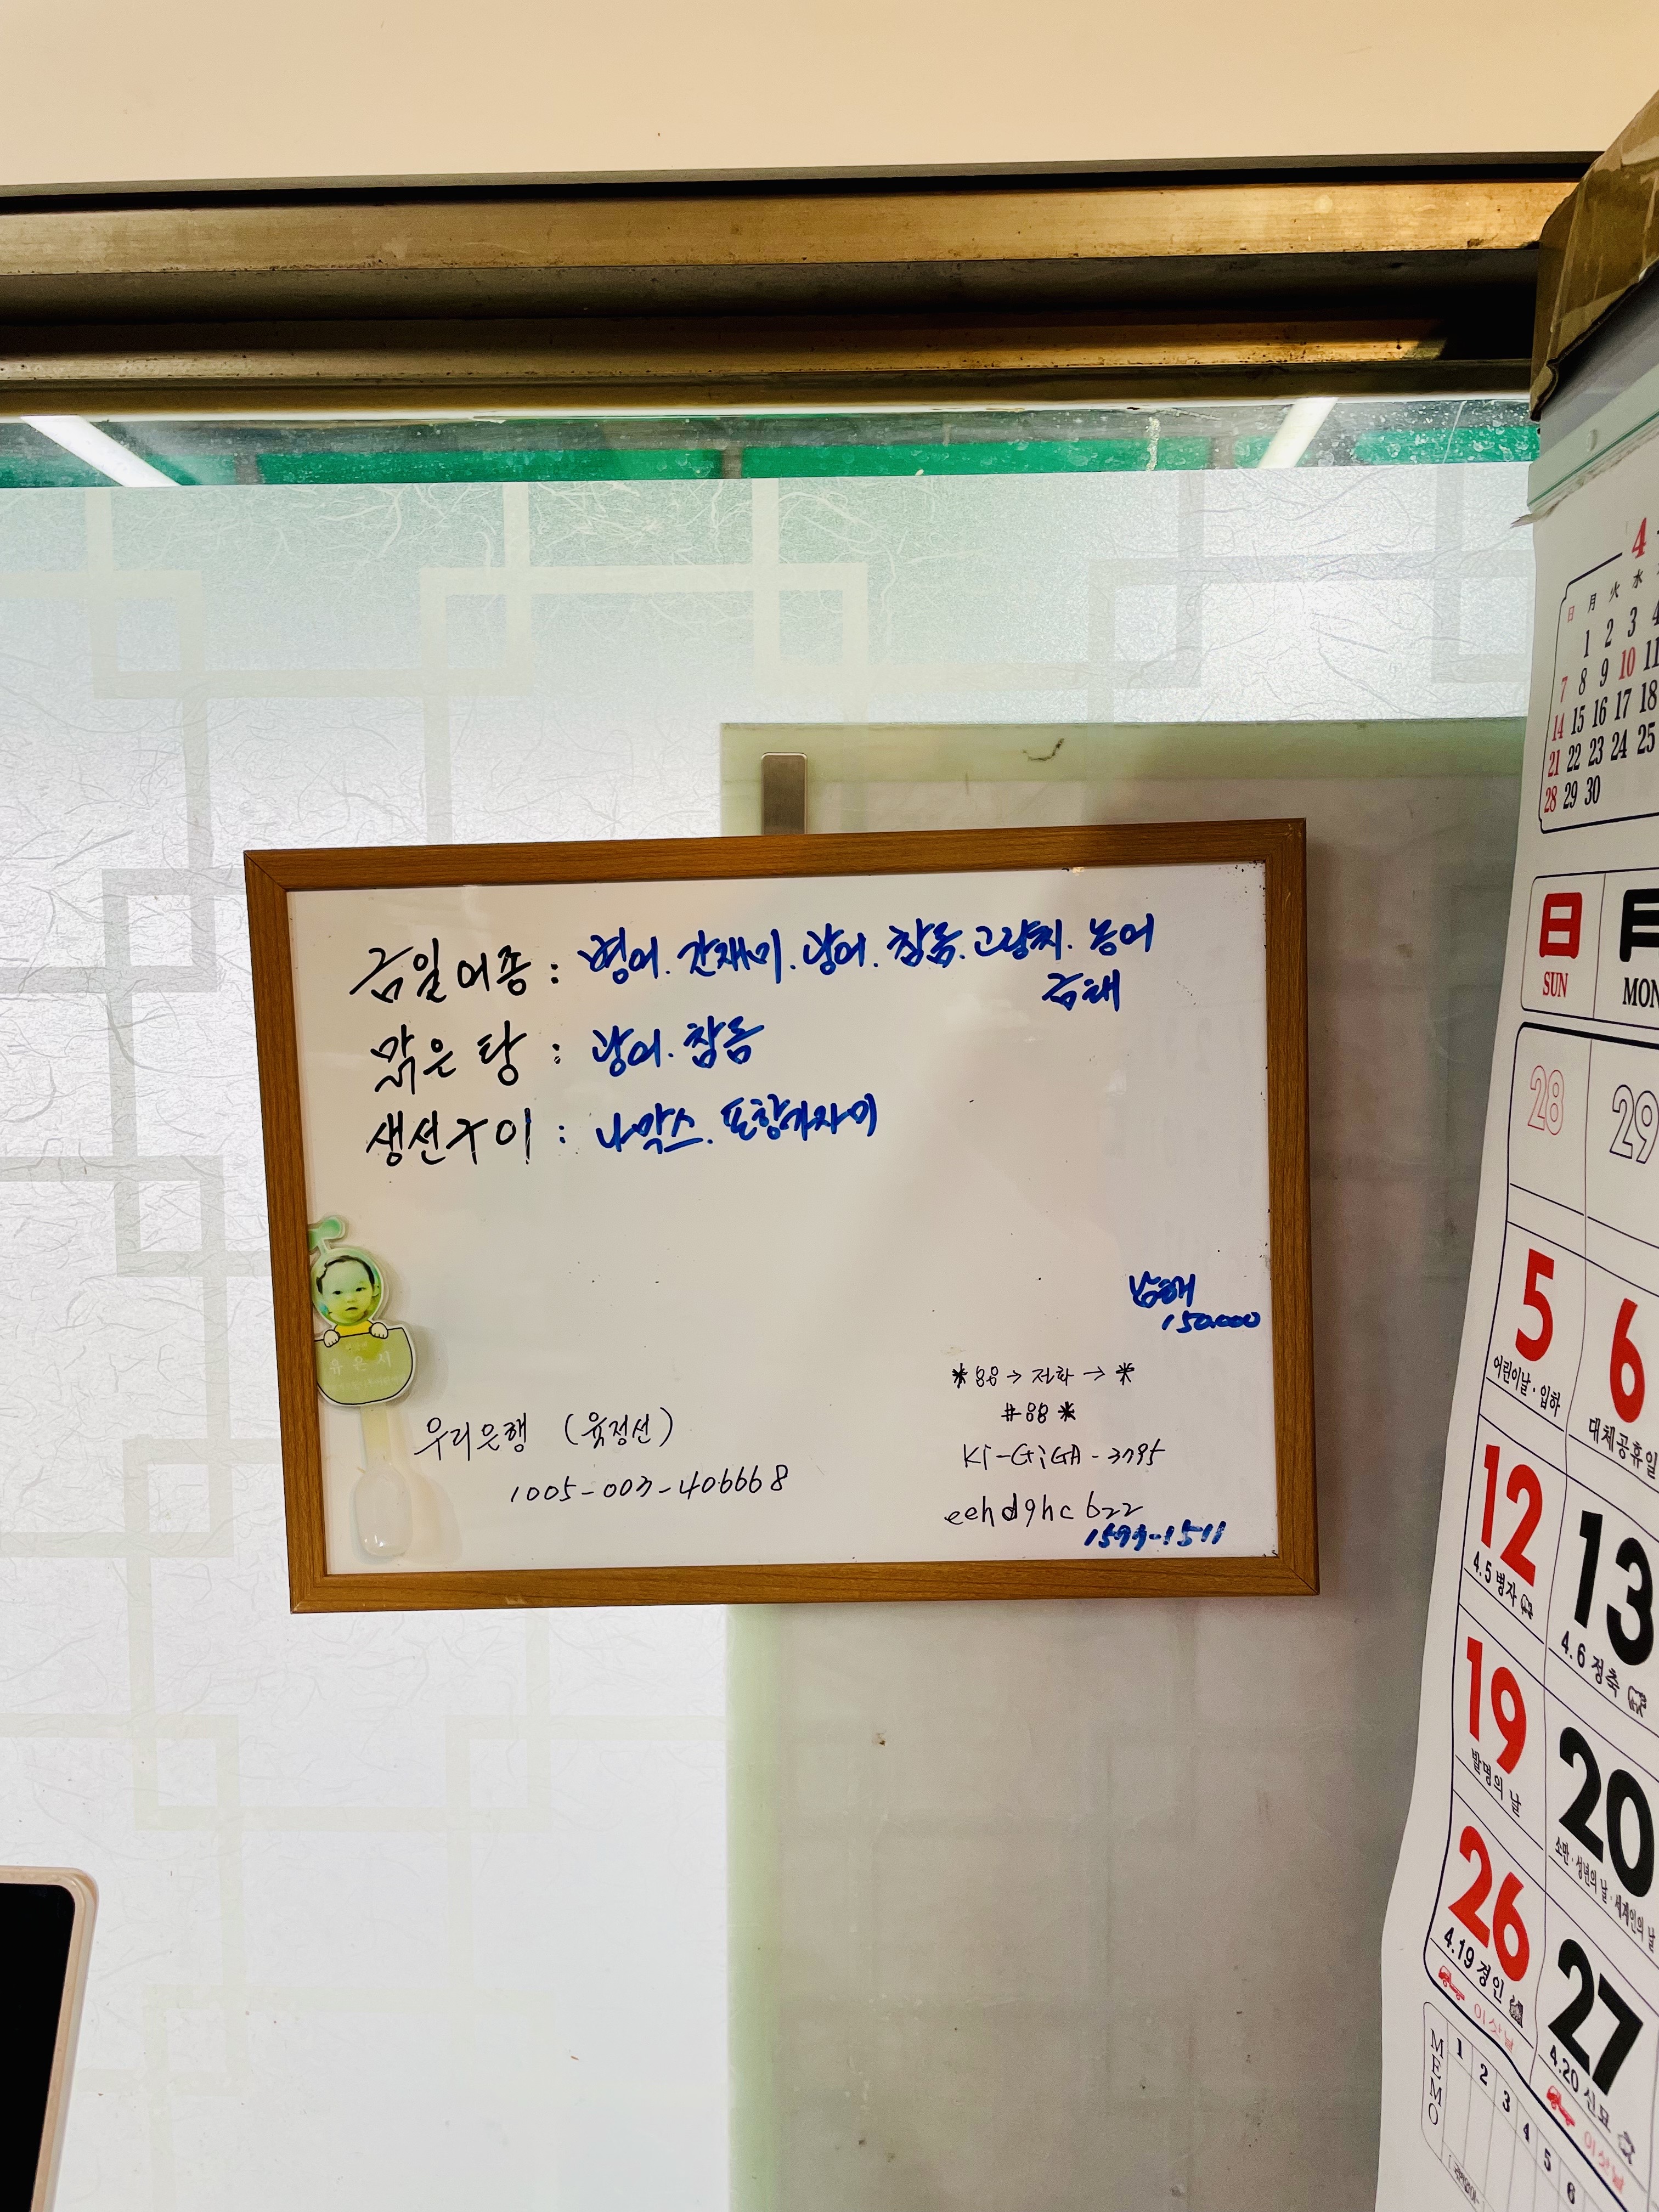 금일어종 : 병어. 간재미. 광어. 참돔. 고랑치. 농어
금태
맑은탕 : 광어. 참돔
생선구이 : 나막스. 포항가자미
남해
150.000
*88→전화→*
#88*
유은서
우리은행 (육정선)
1005-003-406668
KT-GiGA-3795
eehd9hc622
1593-1511
4
日 月 火 水
1 2 3 4
7 8 9 10 11
14 15 16 17 18
21 22 23 24 25
28 29 30
日 月
SUN MON
28 29
5 6
어린이날·입하 대체공휴일
12 13
4.5 병자 4.6 정축
19 20
발명의 날 소만·성년의 날·세계인의 날
26 27
4.19 경인 4.20 신묘
이삿날 이삿날
MEMO 1 2 3 4 5 6